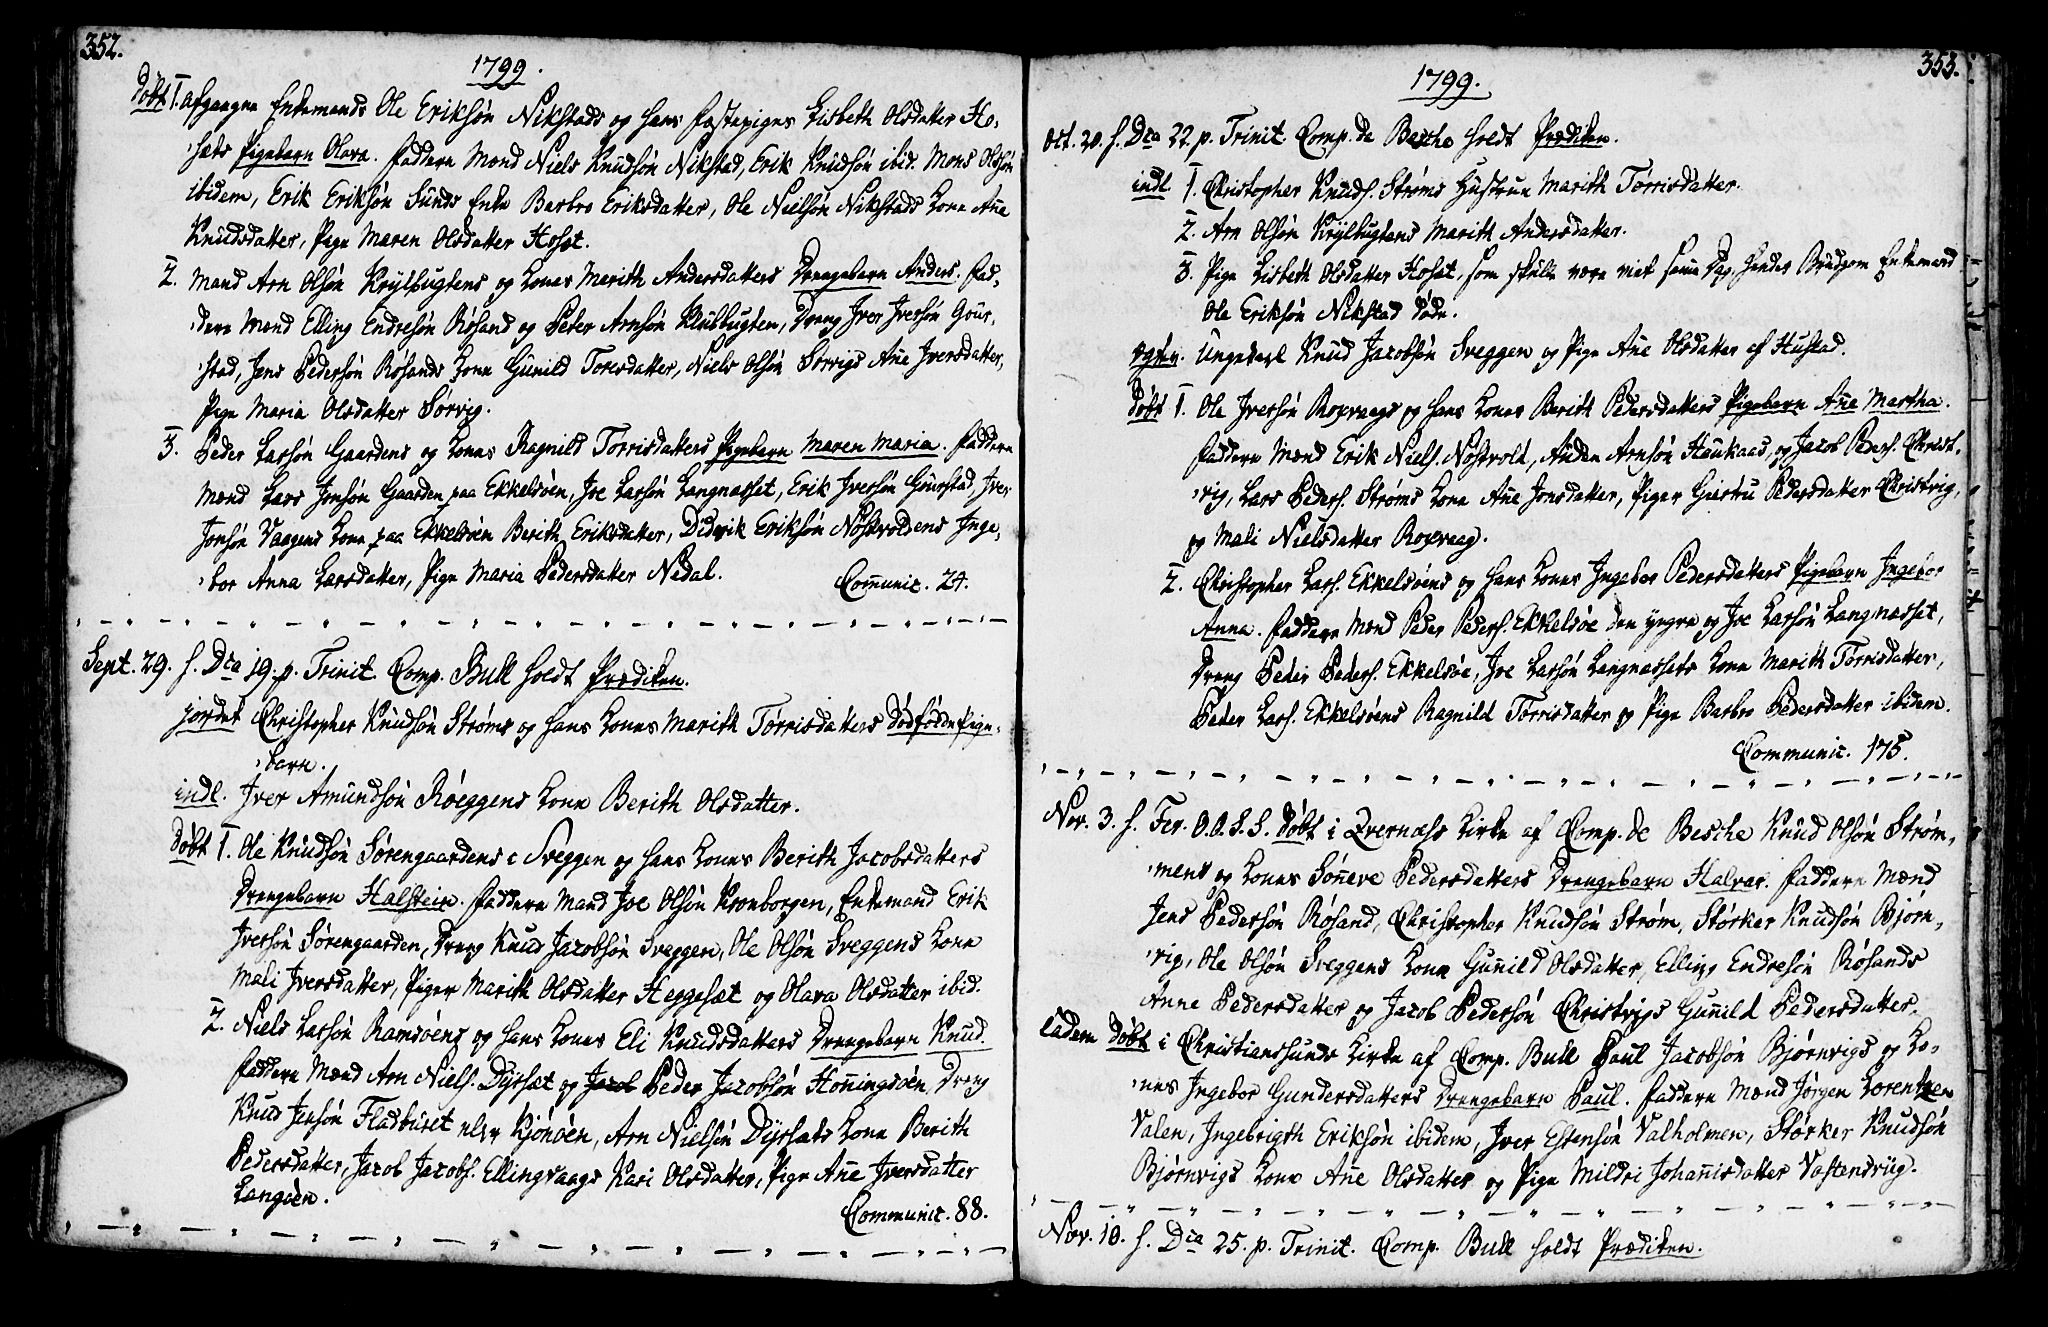 352.
1799.
Døbt 1. afgangne Enkemands Ole Eriksøn Nikstads og hans Fæstepiges Lisbeth Olsdatter Ho-
sæts Pigebarn Olava. Faddere Mænd Niels Knudsøn Nikstad, Erik Knudsøn ibid. Mons Olsøn
ibidem, Erik Eriksøn Sunds Enke Barbro Eriksdatter, Ole Nielsøn Nikstads Kone Ane
Knudsdatter, Pige Maren Olsdatter Hosæt.
2. Mand Arn Olsøn Krylbugtens og Kones Marith Andersdatters Drengebarn Anders. Fad-
dere Mænd Elling Endresøn Røsand og Peder Arnsøn Klubbugten, Dreng Jver Jversøn Gour-
stad, Jens Pedersøn Røsands Kone Gunild Torisdatter, Niels Olsøn Sørvigs Ane Jversdatter,
Pige Maria Olsdatter Sørvig.
3. Peder Larsøn Gaardens og Kones Ragnild Torrisdatters Pigebarn Maren Maria. Faddere
Mænd Lars Jonsøn Gaarden paa Ekkelsøen, Joe Larsøn Langnæsset, Erik Jversøn Gourstad, Jver
Jonsøn Vaagens Kone paa Ekkelsøen Berith Eriksdatter, Didrik Eriksøn Nøstvoldens Inge-
bor Anna Larsdatter, Pige Maria Pedersdatter Nedal.
Communic. 24.
Sept. 29. h. Dca 19. p. Trinit. Comp. Bull holdt Prædiken.
jordet Christopher Knudsøn Strøms og hans Kones Marith Torrisdatters Dødfødde Pige-
barn.
indl. Jver Amundsøn Røeggens Kone Berith Olsdatter.
Døbt 1. Ole Knudsøn Sørengaardens c Sveggen og hans Kones Berith Jacobsdatters
Drengebarn Halstein. Faddere Mænd Joe Olsøn Kronborgen, Enkemand Erik
Jversøn Sørengaarden, Dreng Knud Jacobsøn Sveggen, Ole Olsøn Sveggens Kone
Mali Jversdatter, Piger Marith Olsdatter Heggesæt og Olava Olsdatter ibid.
2. Niels Larsøn Ramsøens og hans Kones Eli Knudsdatters Drengebarn Knud.
Faddere Mænd Arn Niels. Dyrsæt og Jacob Peder Jacobsøn Honningsøen, Dreng
Knud Jensøn Fladbuset eller Kjønøen, Arn Nielsøn Dyrsæts Kone Berith
Pedersdatter, Jacob Jacobs. Ellingvaags Kari Olsdatter, Pige Ane Jversdatter
Langøen.
Communic. 88.
353.
1799.
Oct. 20. h. Dca 22. p. Trinit. Comp. de Besche holdt Prædiken.
indl. 1. Christopher Knuds. Strøms Hustrue Marith Torrisdatter.
2. Arn Olsøn Krylbugtens Marith Andersdatter.
3. Pige Lisbeth Olsdatter Hosæt, som skulle være viet samme Dag, hendes Brudgom Enkemand
Ole Eriksøn Nikstad døde.
Ungekarl Knud Jacobsøn Sveggen og Pige Ane Olsdatter af Hustad.
Døbt 1. Ole Jversøn Roxvaags og hans Kones Berith Pedersdatters Pigebarn Ane Martha.
Faddere Mænd Erik Niels. Nøstvold, Anden Arnsøn Haukaas, og Jacob Peders. Christ-
vig, Lars Peders. Strøms Kone Ane Jonsdatter, Piger Giertru Pedersdatter Christvig,
og Mali Nielsdatter Roxvaag.
2. Christopher Lars. Ekkelsøens og hans Kones Ingebor Pedersdatters Pigebarn Ingebor
Anna. Faddere Mænd Peder Peders. Ekkelsøe den yngre og Joe Larsøn Langnæsset,
Dreng Peder Peders. Ekkelsøe, Joe Larsøn Langnæssets Kone Marith Torrisdatter,
Peder Lars. Ekkelsøens Ragnild Torrisdatter og Pige Barbro Pedersdatter ibidem.
Communic. 175.
Nov. 3. h. Fer. O. O. S. S. Døbt i Qvernæss Kirke af Comp. de Besche Knud Olsøn Strøm-
mens og Kones Sønneve Pedersdatters Drengebarn Halvar. Faddere Mænd
Jens Pedersøn Røsand, Christopher Knudsøn Strøm, Størker Knudsøn Bjørn-
vig, Ole Olsøn Sveggens Kone Gunild Olsdatter, Elling Endresøn Røsands
Anne Pedersdatter og Jacob Pedersøn Christvigs Gunild Pedersdatter.
Eadem Døbt i Christiansunds Kirke af Comp. Bull Paul Jacobsøn Bjørnvigs og Ko-
nes Ingebor Gundersdatters Drengebarn Paul. Faddere Mænd Jørgen Lorentzen
Valen, Ingebrigth Eriksøn ibidem, Jver Estensøn Valholmen, Størker Knudsøn
Bjørnvigs Kone Ane Olsdatter og Pige Mildri Johannisdatter Vastenskug.
Nov. 10. h. Dca 25. p. Trinit. Comp. Bull holdt Prædiken.